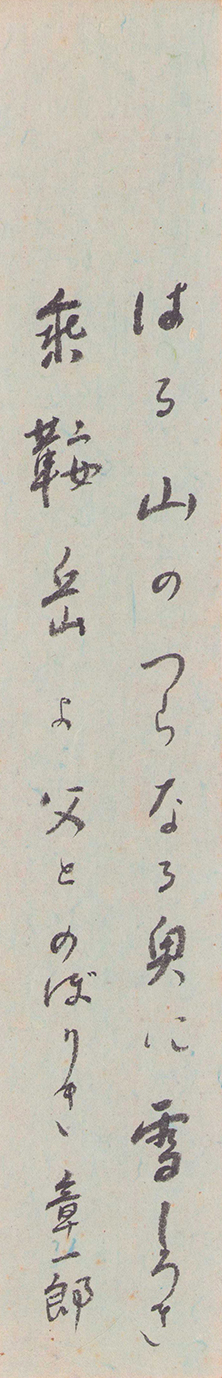 はる山のつらなる奥に雪しろき
乗鞍岳よ父とのぼりき 章一郎